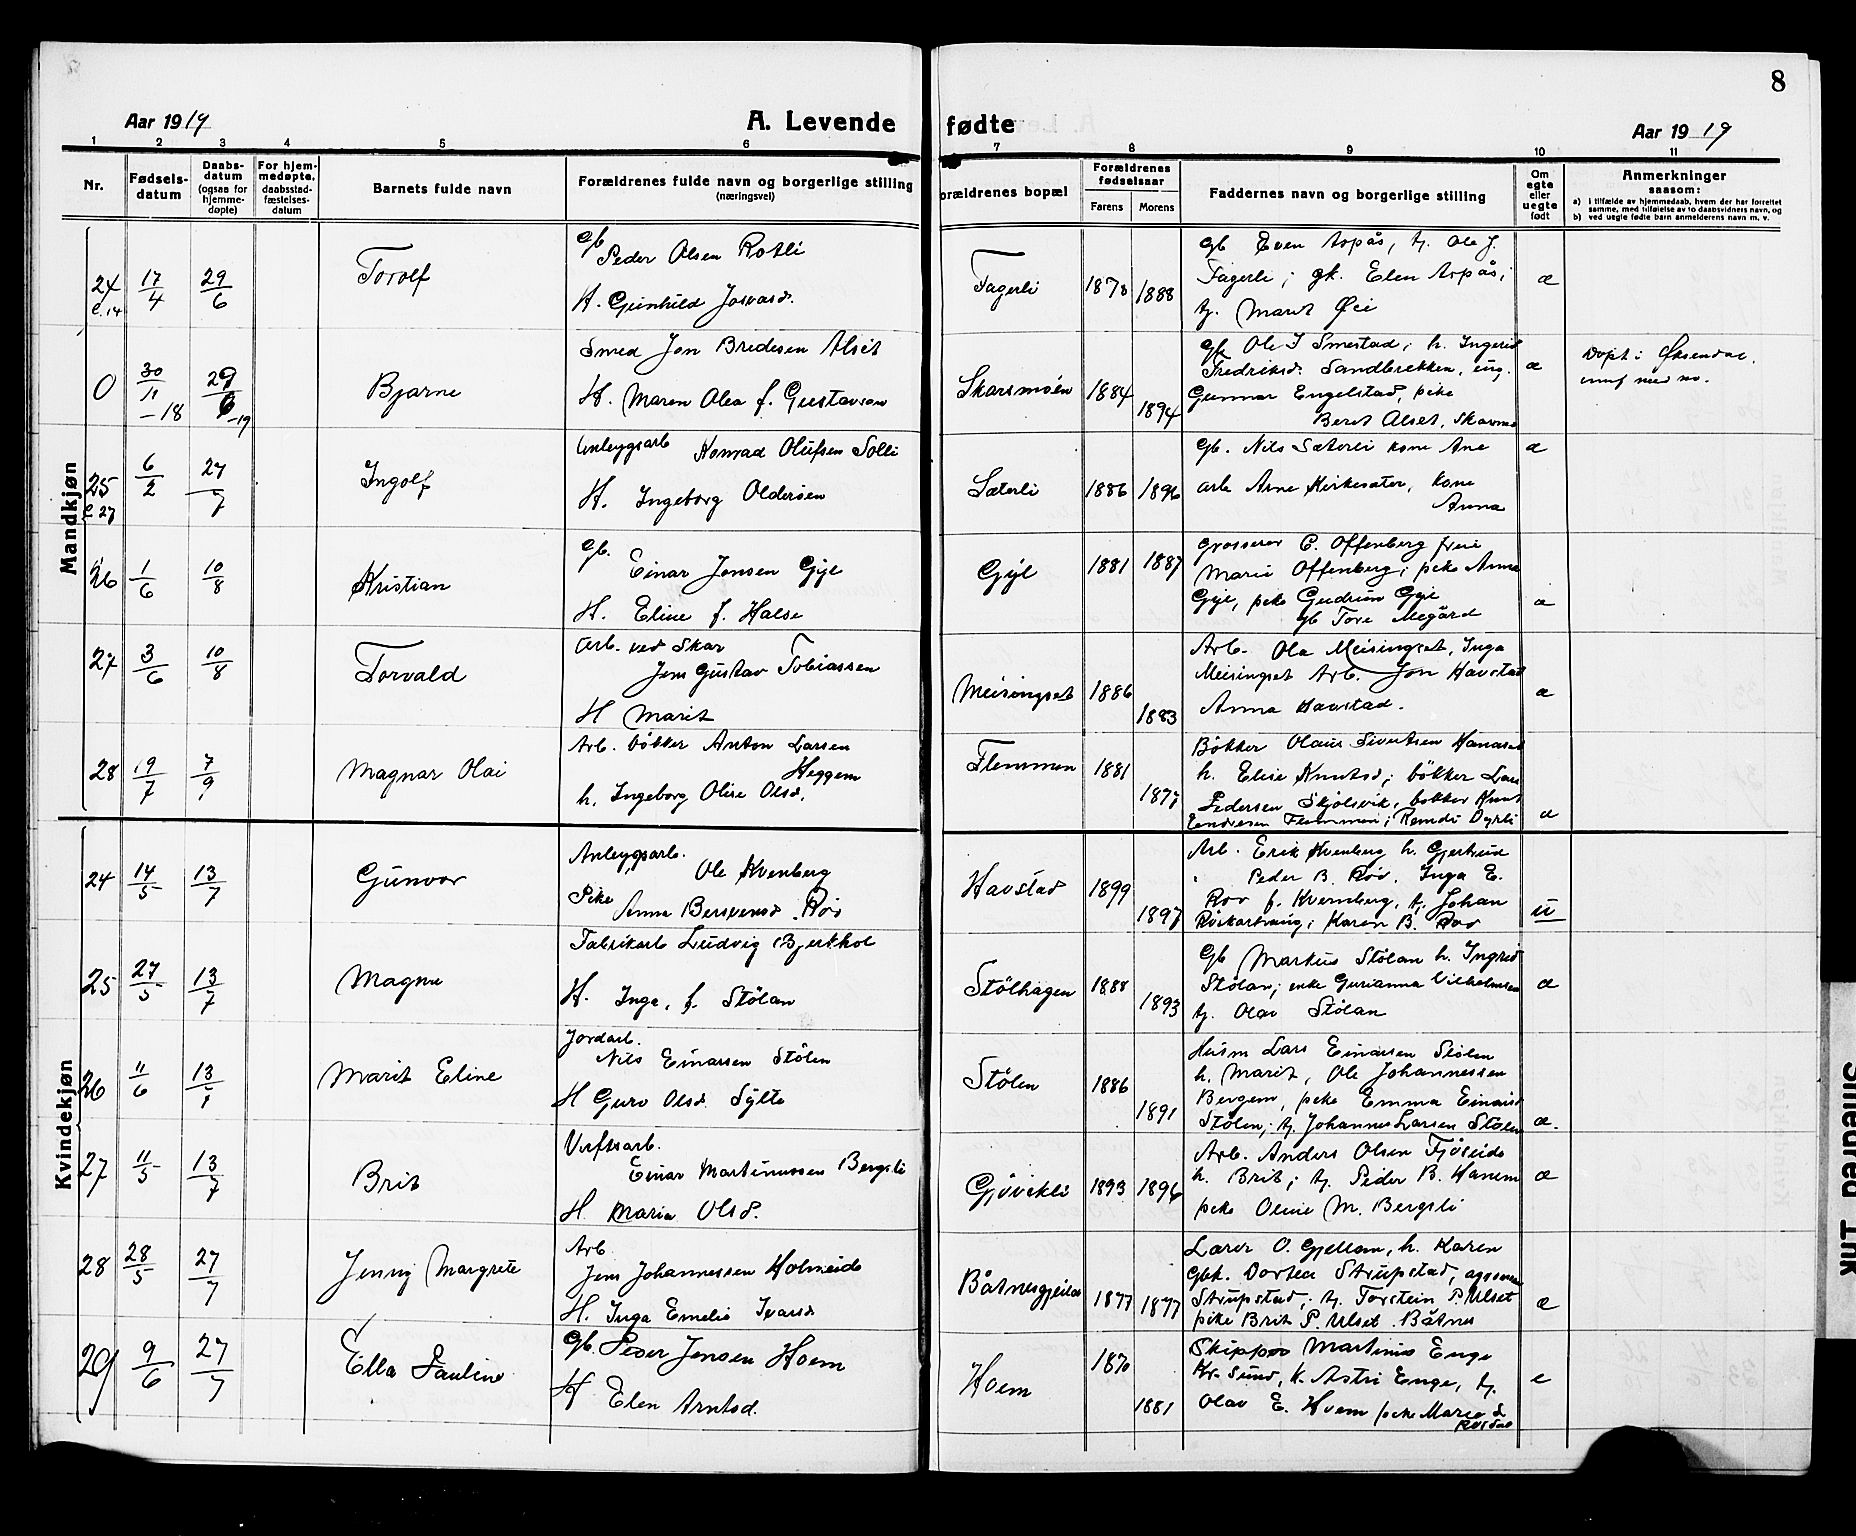 8
Aar 1919
A. Levende fødte
Aar 1919
1 2 3 4 5 6 7 8 9 10 11
Nr.
Fødsels-
datum
Daabs-
datum
(ogsaa for
hjemme-
døpte)
For hjem-
medøpte,
daabsstad-
fæstelses-
datum
Barnets fulde navn
Forældrenes fulde navn og borgerlige stilling
(næringsvei)
orældrenes bopæl
Forældrenes
fødselsaar
Farens Morens
Faddernes navn og borgerlige stilling
Om
egte
eller
uegte
født
Anmerkninger
saasom:
a) i tilfælde av hjemmedaab, hvem der har forrettet
samme, med tilføielse av to daabsvidners navn, og
b) ved uegte fødte barn anmelderens navn m. v.
Mandkjøn
24 17/4 29/6 Torolf
Gb Peder Olsen Rotli
H. Gunhild
Fagerli 1878 1888
Gb Even Aspås, Ole J.
Fagerli; gk. Elen Aspås;
Marit Øie
æ
0 30/11 -18 29/6 -19 Bjarne
Smed Jon Bredesen Alset
H. Maren Olea f. Gustavson
Skarsmoen 1884 1894
Ole I Smestad; h. Ingerid
Fredriksd. Sandbrekken, ung.
Gunnar Engelstad, pike
Beret Alset,
æ
Døpt i Øksendal.
25 6/2 27/7 Ingolf
Anlegsarb Konrad Olufsen Solli
H. Ingeborg Oldersen
Sæterli 1886 1896
Gb. Nils Sæterli kone Ane
arb Arne Kirkesæter, kone
Anna
æ
26 1/6 10/8 Kristian
Gb.
Einar Jonsen Gyl
H. Eline f. Halse
Gyl 1881 1887
Grosserer C. Offenberg frue
Marie Offenberg; pike Anna
Gyl, pike Gudrun Gyl
gb Tore Megård
æ
27 3/6 10/8 Torvald
Arb. ved Skar
Jens Gustav Tobiassen
H Marit
Meisingset 1886 1883
Arb. Ola Meisingset, Inga
Meisingset Arb. Jon Havstad
Anna Havstad.
æ
28 19/7 7/9 Magnar Olai
Arb. bøkker Anton Larsen
Heggem
h. Ingeborg Olise Olsd.
Flemmen 1881 1877
Bøkker Olaus Sivertsen
h. Elise Knutsd; bøkker Lars
Pedersen Skjølsvik, bøkker Knut
Flemmen;
æ
Kvindekjøn
24 14/5 13/7 Gunvor
Anlegsarb.
Ole Kvenberg
Pike
Anna Bersvensd. Røv
Havstad 1899 1897
Arb. Erik Kvenberg h. Gjertrud
Peder B. Røv, Inga E.
Røv f. Kvernberg, Johan
Karen B. Røv
u
25 27/5 13/7 Magna
Fabrikarb Ludvig Bjerkhol
H. Inga, f. Stølan
Stølhagen 1888 1893
Gb Markus Stølan h. Ingrid
Stølan; enke Gurianna Vilhelmsen
Olav Stølan
æ
26 11/6 13/7 Marit Eline
Jordarb.
Nils Einarsen Stølen
H Guro Olsd. Sylte
Stølen 1886 1891
Husm Lars Einarsen Stølen
h. Marit, Ole Johannessen
Bergem, pike Emma Einarsd
Stølen; Johannes Larsen Stølen
æ.
27 11/5 13/7 Brit
Verftsarb.
Einar Martinussen Bergsli
H Maria Olsd.
Gjøvikli 1893 1896
Arb. Anders Olsen Fjøseide
h. Brit; Peder B. Hanem
pike Oline M. Bergsli
æ
28 28/5 27/7 Jenny Margrete
Arb
Jens Johannessen Holmeide
H. Inga Emelie Ivarsd
1877 1877
Lærer O. Gjellan, h. Karen
Gbk. Dortea Strupstad,
Strupstad; Torstein P. Ulset
pike Brit P. Ulset. Båtnes
æ
29 9/6 27/7 Ella Pauline
Gb. Peder Jensen Hoem
H Elen Arntsd.
Hoem 1870 1881
Skipper Martinus Enge
Kr. Sund, k. Astri Enge,
Olav E. Hoem pike Marie
e